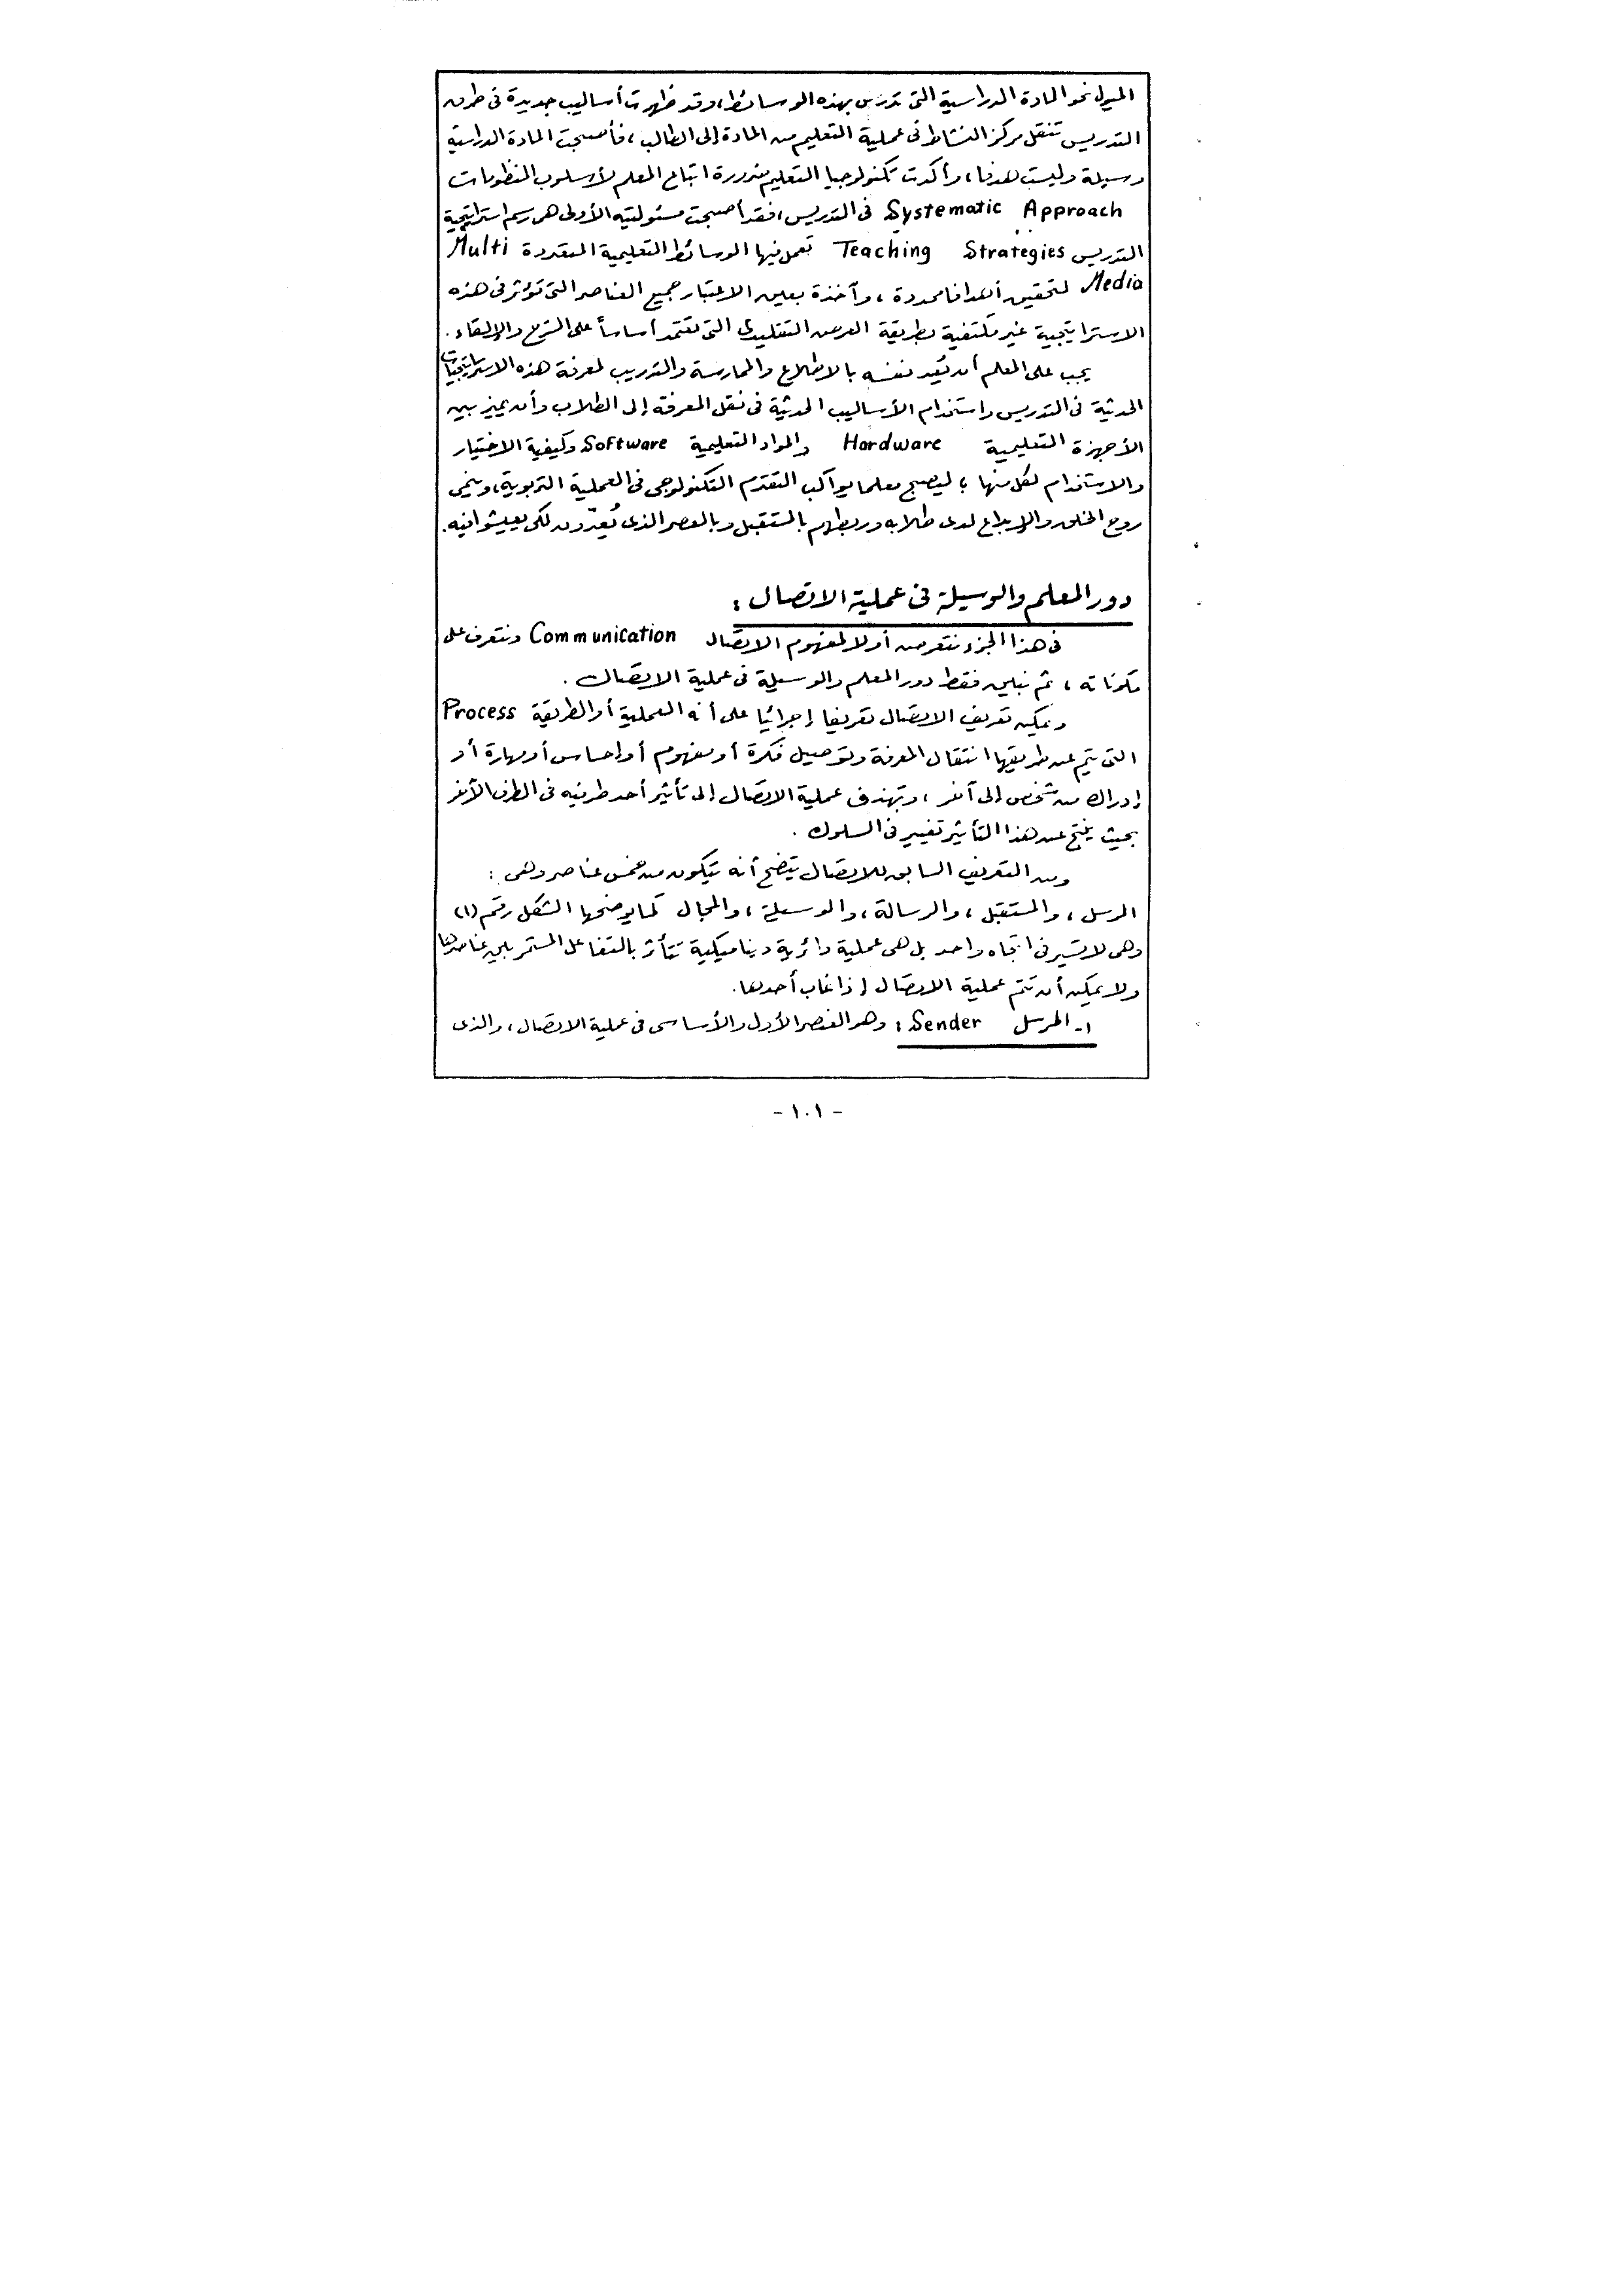 الميول نحو المادة الدراسية التى تدرس بهذه الوسائط، وقد ظهرت أساليب جديدة فى طرق
التدريس تنقل مركز النشاط فى عملية التعليم من المادة إلى الطالب، فأصبحت المادة الدراسية
وسيلة وليست هدفا، وأكدت تكنولوجيا التعليم ضرورة اتباع المعلم لأسلوب المنظومات
Systematic Approach فى التدريس، فقد أصبحت مسئوليته الأولى هى رسم استراتيجية
التدريس Teaching Strategies تعمل فيها الوسائط التعليمية المتعددة Multi
Media لتحقيق أهدافا محددة، وآخذة بعين الاعتبار جميع العناصر التى تؤثر فى هذه
الاستراتيجية غير مكتفية بطريقة العرض التقليدى التى تعتمد أساساً على الشرح والإلقاء.
يجب على المعلم أن يُعِد نفسه بالاطلاع والممارسة والتدريب لمعرفة هذه الاستراتيجيات
الحديثة فى التدريس واستخدام الأساليب الحديثة فى نقل المعرفة إلى الطلاب وأن يميز بين
الأجهزة التعليمية Hardware والمواد التعليمية Software وكيفية الاختيار
والاستخدام لكل منها؛ ليصبح معلما يواكب التقدم التكنولوجى فى العملية التربوية، وينمى
روح الخلق والإبداع لدى طلابه وربطهم بالمستقبل وبالعصر الذى يُعدّون لكى يعيشوا فيه.
دور المعلم والوسيلة فى عملية الاتصال :
فى هذا الجزء نتعرض أولا لمفهوم الاتصال Communication ونتعرف على
مكوناته، ثم نبين فقط دور المعلم والوسيلة فى عملية الاتصال.
ويمكن تعريف الاتصال تعريفا إجرائيا على أنه العملية أو الطريقة Process
التى يتم عن طريقها انتقال المعرفة وتوصيل فكرة أو مفهوم أو إحساس أو مهارة أو
إدراك من شخص إلى آخر، وتهدف عملية الاتصال إلى تأثير أحد طرفيه فى الطرف الآخر
بحيث ينتج عن هذا التأثير تغيير فى السلوك.
ومن التعريف السابق للاتصال يتضح أنه يتكون من خمس عناصر وهى :
المرسل، والمستقبل، والرسالة، والوسيلة، والمجال كما يوضحها الشكل رقم (١)
وهى لا تسير فى اتجاه واحد بل هى عملية دائرية ديناميكية تتأثر بالتفاعل المستمر بين عناصرها
ولا يمكن أن تتم عملية الاتصال إذا غاب أحدها.
١- المرسل Sender : وهو العنصر الأول والأساسى فى عملية الاتصال، والذى
- ١٠١ -